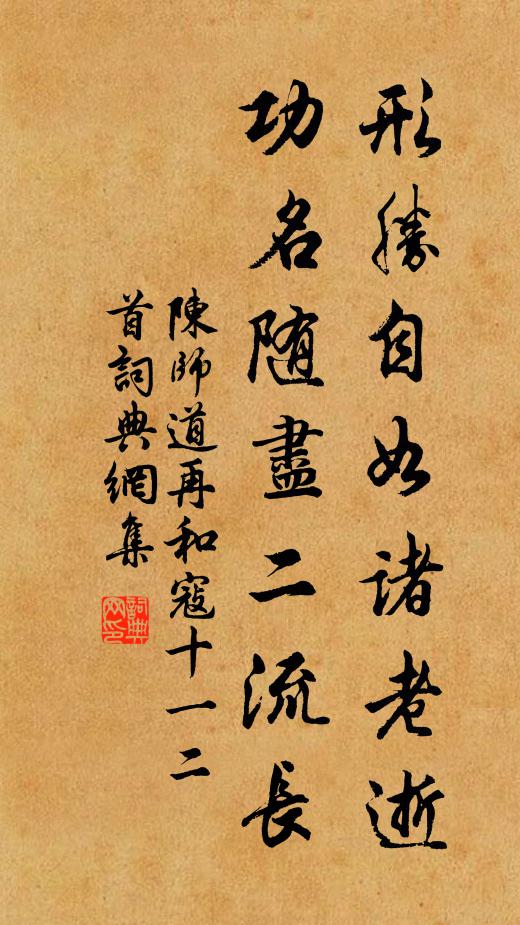 形勝自如諸老逝
功名随盡二流長
陳師道再和寇十一二
首詞典網集
詞典
网印